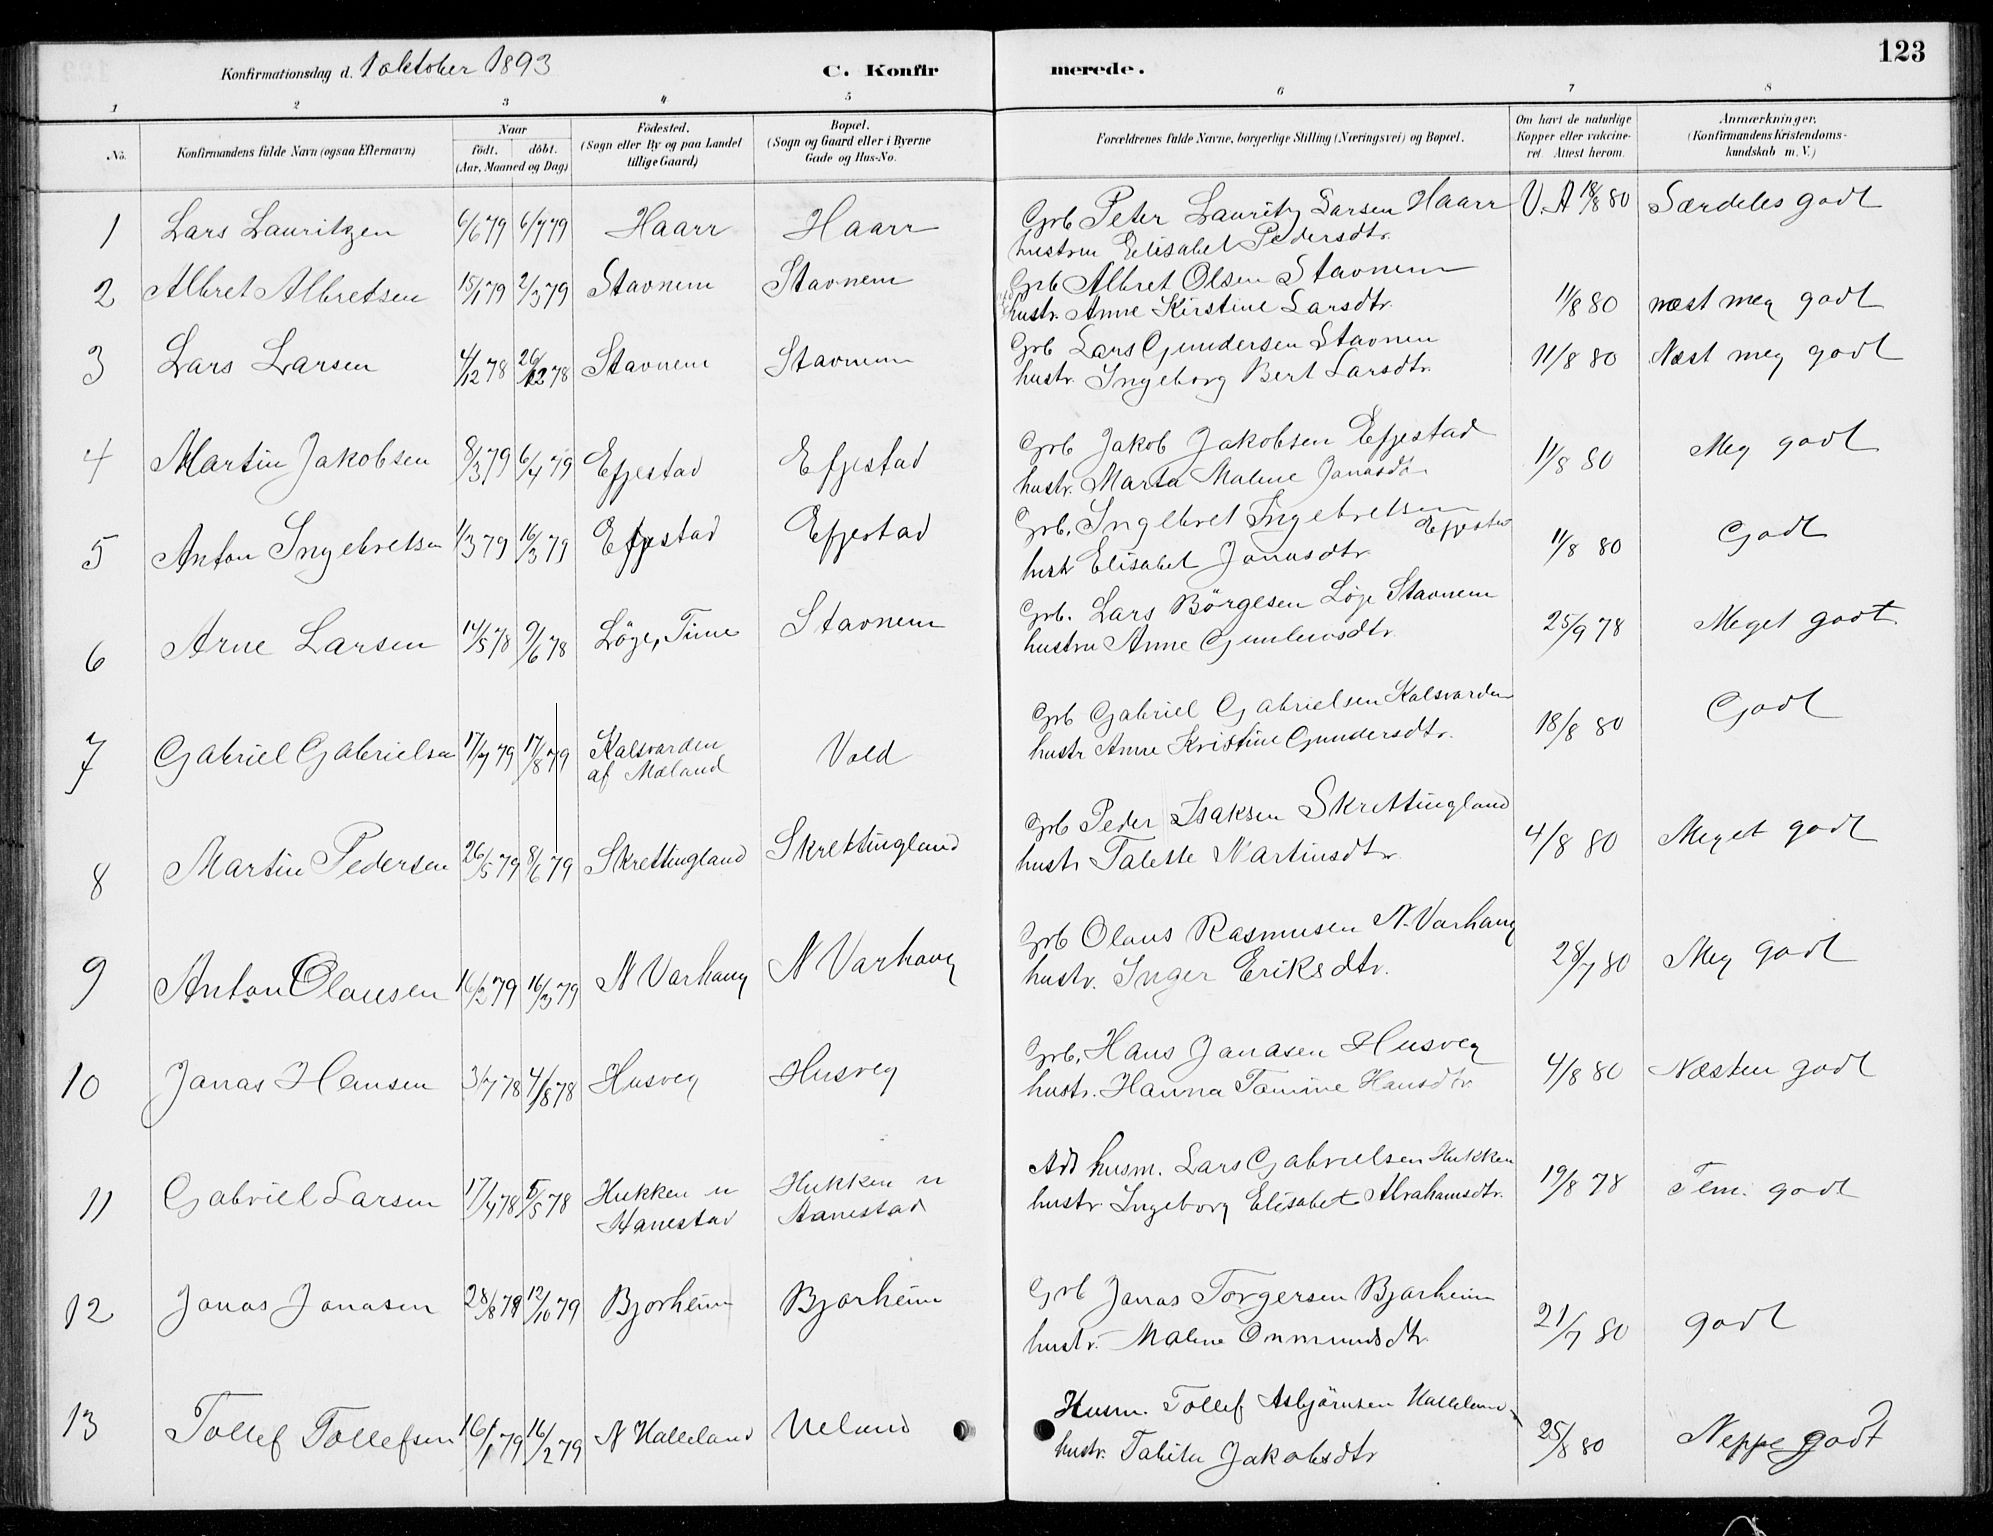 Konfirmationsdag d. 1 oktober 1893 C. Konfirmerede. 123
1 2 3 4 5 6 7 8
No. Konfirmandens fulde Navn (ogsaa Efternavn) Naar født. døbt. (Aar, Maaned og Dag) Fødested. (Sogn eller By og paa Landet tillige Gaard) Bopæl. (Sogn og Gaard eller i Byerne Gade og Hus-No. Forældrenes fulde Navne, borgerlige Stilling (Næringsvei) og Bopæl. Om havt de naturlige Kopper eller vakcineret. Attest herom. Anmærkninger. (Konfirmandens Kristendomskundskab m. V.)
1 Lars Lauritzen 6/6 79 6/7 79 Haarr Haarr Grb Peter Lauritz Larsen Haarr V. A 18/8 80 Særdeles godt
hustru Elisabet Pedersdtr.
2 Albret Albretsen 15/1 79 2/3 79 Stavnem Stavnem Grb Albret Olsen Stavnem
hustr. Anne Kirstine Larsdtr. 11/8 80 næst meg godt
3 Lars Larsen 4/12 78 26/12 78 Stavnem Stavnem Grb Lars Gundersen Stavnem 11/8 80 Næst meg godt
hustr. Ingeborg Bert Larsdtr.
4 Martin Jakobsen 8/3 79 6/4 79 Efjestad Efjestad Grb Jakob Jakobsen Efjestad 11/8 80 Meg godt
hustr. Marta Malene Jonasdtr
5 Anton Ingebretsen 1/3 79 16/3 79 Efjestad Efjestad Grb. Ingebret Ingebretsen Efjestad
hustr Elisabet Jonasdtr. 11/8 80 Godt
6 Arne Larsen 14/5 78 9/6 78 Løge, Time Stavnem Grb. Lars Børgesen Løge Stavnem 25/9 78 Meget godt
hustru Anne
7 Gabriel Gabrielsen 17/7 79 17/8 79 Kalsvarden af Mæland Vold Grb Gabriel Gabrielsen Kalsvarden 18/8 80 Godt
hustr Anne Kristine Gundersdtr.
8 Martin Pedersen 26/5 79 8/6 79 Skrettingland Skrettingland Grb Peder Isaksen Skrettingland 4/8 80 Meget godt
hustr Talette Martinsdtr.
9 Anton Olausen 16/2 79 16/3 79 N Varhaug N Varhaug Grb Olaus Rasmusen N. Varhaug 28/7 80 Meg godt
hustr. Inger Eriksdtr.
10 Jonas Hansen 3/7 78 4/8 78 Husveg Husveg Grb. Hans Jonasen Husveg 4/8 80 Næsten godt
hustr. Hanna Tomine Hansdtr
11 Gabriel Larsen 17/4 78 5/5 78 Hukken u Aanestad Hukken u Aanestad husm. Lars Gabrielsen Hukken 19/8 78 Tem. godt
hustr Ingeborg Elisabet Abrahamsdtr.
12 Jonas Jonasen 28/8 79 12/10 79 Bjorheim Bjorheim Grb Jonas Torgersen Bjorheim 21/7 80 godt
hustr. Malene Onmundsdtr.
13 Tollef Tollefsen 16/1 79 16/2 79 N Halleland Ueland Husm. Tollef Asbjørnsen Halleland 25/8 80 Neppe godt
hustr. Tabita Jakobsdtr